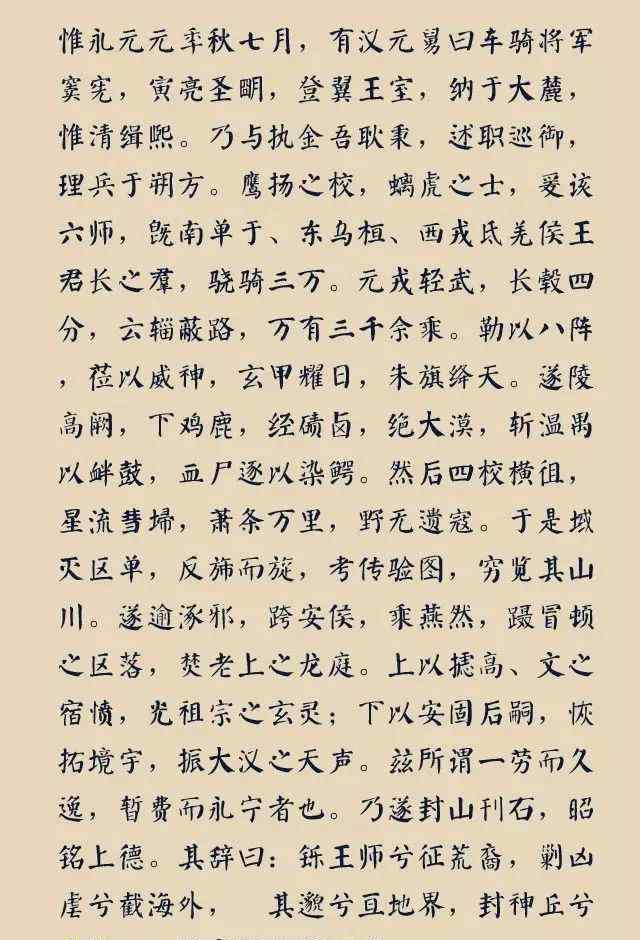 惟永元元年秋七月，有汉元舅曰车骑将军
窦宪，寅亮圣明，登翼王室，纳于大麓，
惟清缉熙。乃与执金吾耿秉，述职巡御，
理兵于朔方。鹰扬之校，螭虎之士，爰该
六师，既南单于、东乌桓、西戎氐羌侯王
君长之群，骁骑三万。元戎轻武，长毂四
分，云辎蔽路，万有三千余乘。勒以八阵
，莅以威神，玄甲耀日，朱旗绛天。遂陵
高阙，下鸡鹿，经碛卤，绝大漠，斩温禺
以衅鼓，血尸逐以染锷。然后四校横徂，
星流彗埽，萧条万里，野无遗寇。于是域
灭区单，反旆而旋，考传验图，穷览其山
川。遂逾涿邪，跨安侯，乘燕然，蹑冒顿
之区落，焚老上之龙庭。上以摅高、文之
宿愤，光祖宗之玄灵；下以安固后嗣，恢
拓境宇，振大汉之天声。兹所谓一劳而久
逸，暂费而永宁者也。乃遂封山刊石，昭
铭上德。其辞曰：铄王师兮征荒裔，剿凶
虐兮截海外， 其邈兮亘地界，封神丘兮